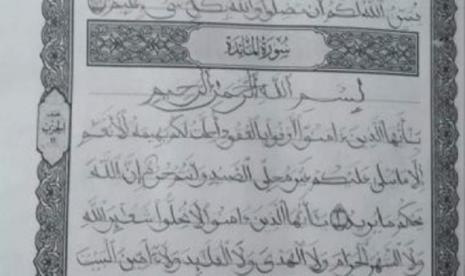 يبين الله لكم أن تضلوا والله بكل شيء عليم
سورة المائدة
بسم الله الرحمن الرحيم
يأيها الذين ءامنوا أوفوا بالعقود أحلت لكم بهيمة الأنعم
إلا ما يتلى عليكم غير محلي الصيد وأنتم حرم إن الله
يحكم ما يريد ١ يأيها الذين ءامنوا لا تحلوا شعئر الله
ولا الشهر الحرام ولا الهدي ولا القلئد ولا ءامين البيت
الحزب